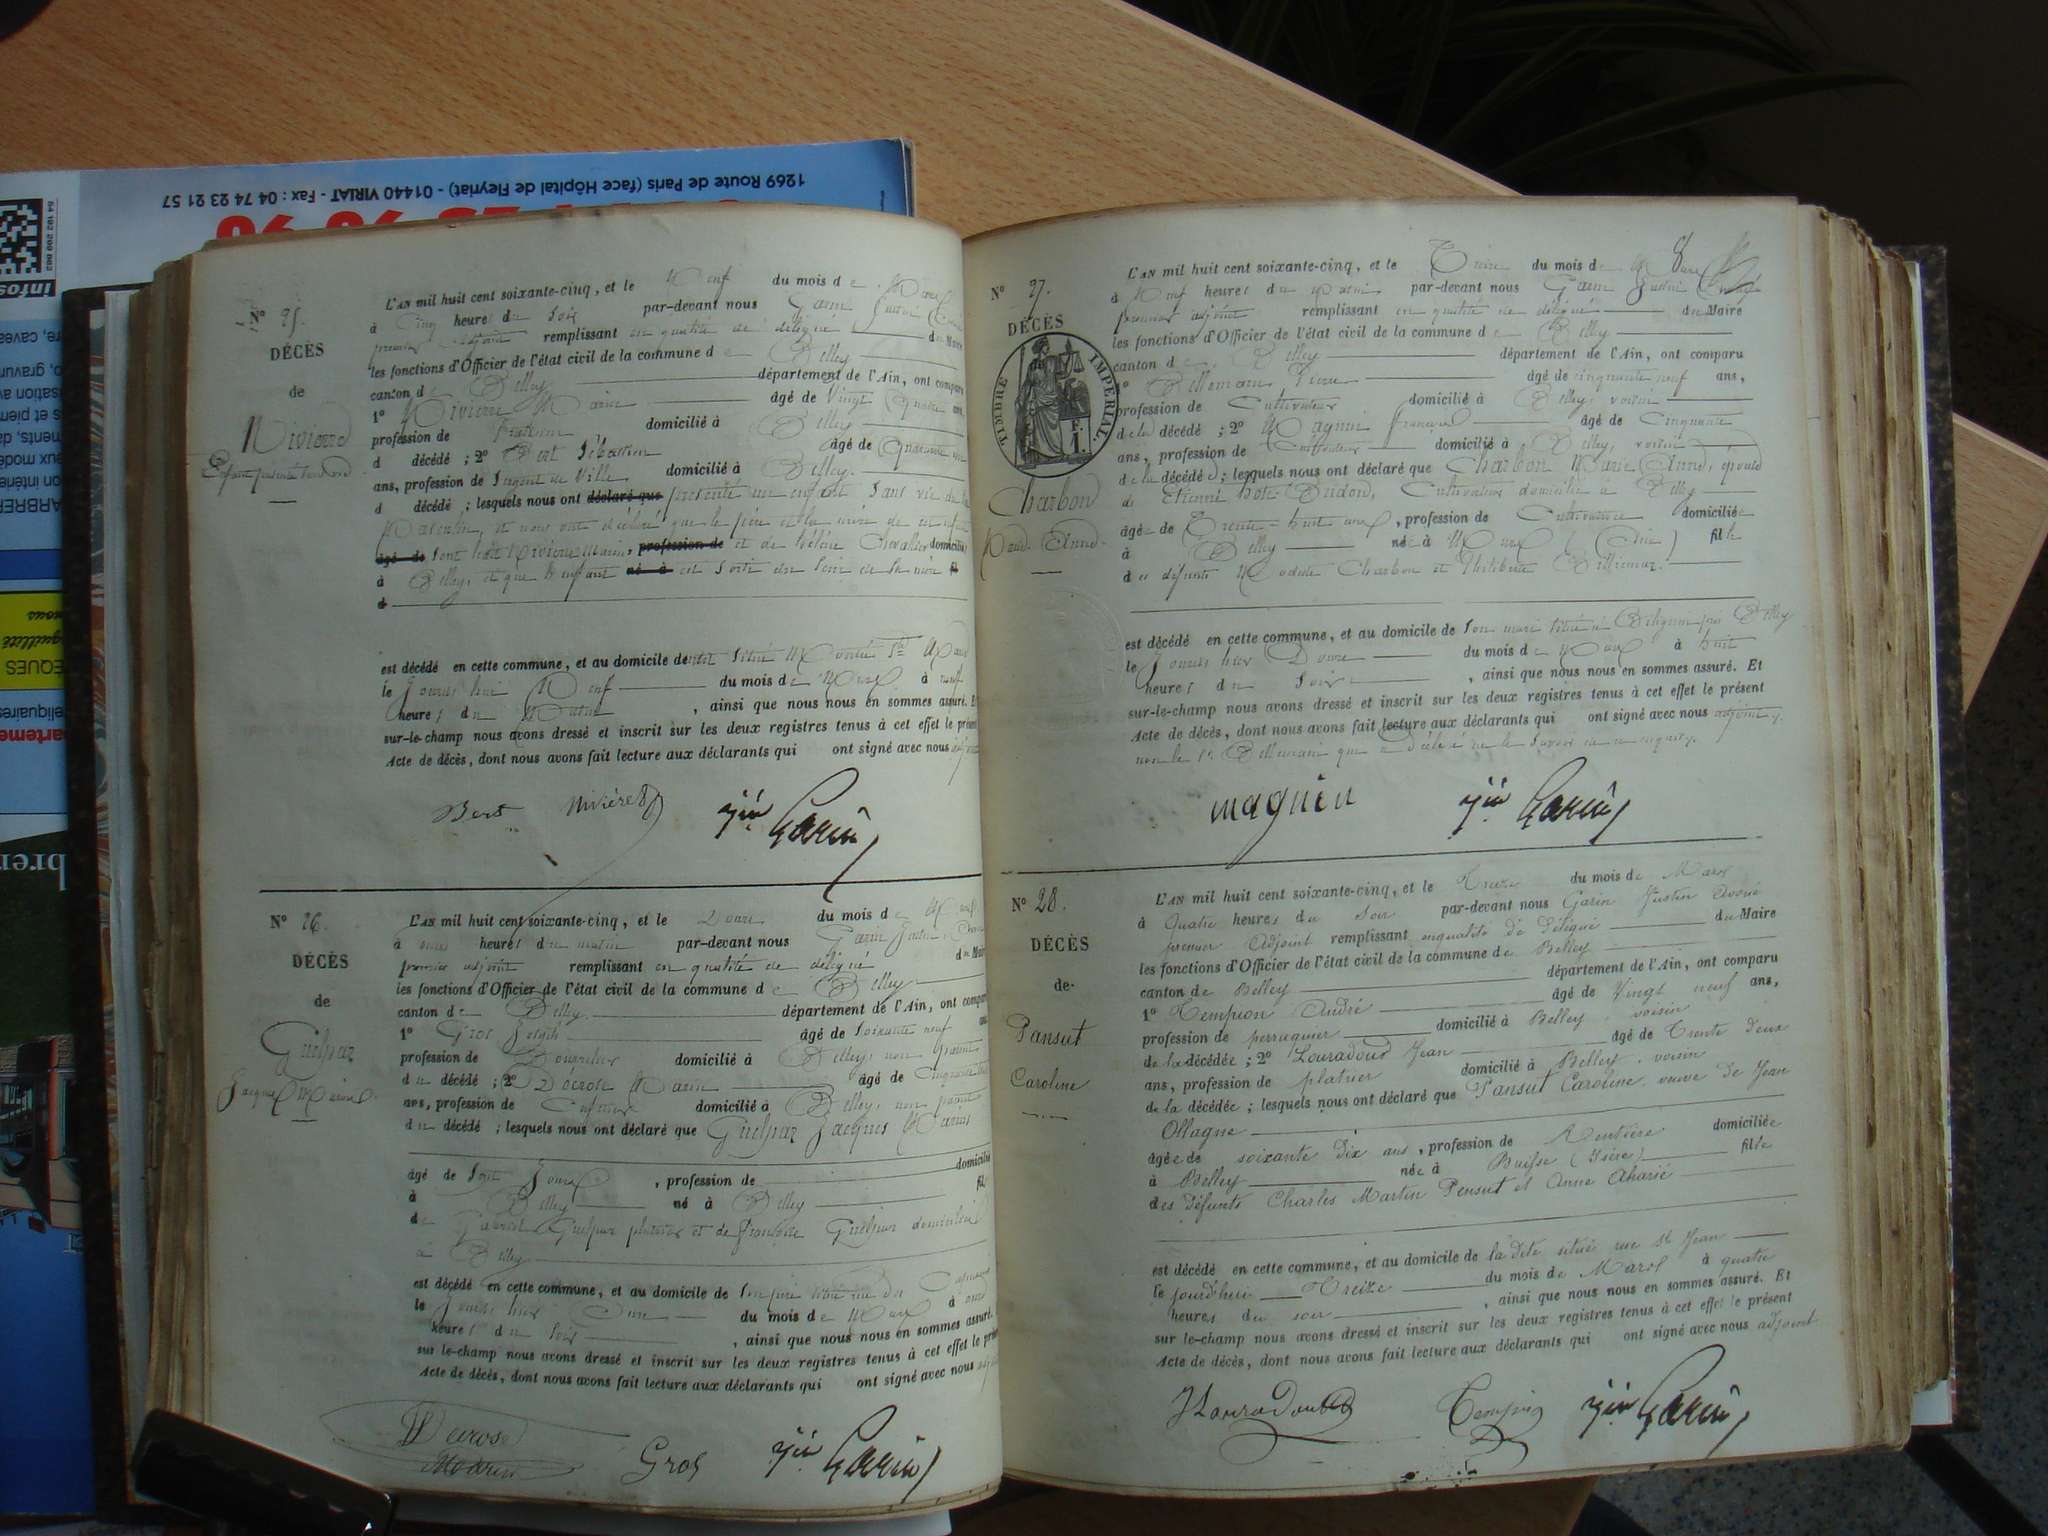 1269 Route de Paris (face Hôpital de Fleyriat) - 01440 VIRIAT - Fax : 04 74 23 21 57
Nº 25.
DÉCÈS
de
L'AN mil huit cent soixante-cinq, et le Neuf du mois de Mars
à Cinq heures du Soir par-devant nous Garin Justin
premier adjoint remplissant en qualité de délégué du Maire
les fonctions d'Officier de l'état civil de la commune de Belley
canton de Belley département de l'Ain, ont comparu
1º Marin âgé de Vingt Quatre ans
profession de domicilié à Belley
d décédé ; 2º Bert Sébastien âgé de Quarante un
ans, profession de Sergent de Ville domicilié à Belley.
d décédé ; lesquels nous ont déclaré que présenté un enfant Sans vie
Masculin, et nous ont déclaré que le père et la mère de cet enfant
âgé de Sont Marin, profession de et de Hélène Chevalier domiciliés
à Belley, et que l'enfant né à est Sorti du Sein de Sa mère fil
d
est décédé en cette commune, et au domicile de
le Jourd'hui Neuf du mois de Mars à neuf
heures du Matin , ainsi que nous nous en sommes assuré. Et
sur-le-champ nous avons dressé et inscrit sur les deux registres tenus à cet effet le présent
Acte de décès, dont nous avons fait lecture aux déclarants qui ont signé avec nous adjoint
Bert
Jin Garin
Nº 26.
DÉCÈS
de
Guelpaz
Jacques Marius.
L'AN mil huit cent soixante-cinq, et le Douze du mois de Mars
à onze heures du matin par-devant nous Garin Justin,
premier adjoint remplissant en qualité de délégué du Maire
les fonctions d'Officier de l'état civil de la commune de Belley
canton de Belley. département de l'Ain, ont comparu
1º Gros Joseph âgé de Soixante neuf ans
profession de Bourrelier domicilié à Belley, non parent
du décédé ; 2º Marin âgé de Cinquante
ans, profession de domicilié à Belley, non parent
du décédé ; lesquels nous ont déclaré que Guelpaz Jacques Marius
âgé de Sept Jours , profession de domicilié
à Belley né à Belley fils
de Gabriel Guelpaz platrier et de Françoise Guelpaz domiciliés
à Belley
est décédé en cette commune, et au domicile de Son père
le Jour hier Onze du mois de Mars à onze
heures du Soir , ainsi que nous nous en sommes assuré.
sur le-champ nous avons dressé et inscrit sur les deux registres tenus à cet effet le présent
Acte de décès, dont nous avons fait lecture aux déclarants qui ont signé avec nous adjoint
Gros
Jin Garin
Nº 27.
DÉCÈS
TIMBRE IMPÉRIAL.
Charbon
Marie Anne.
L'AN mil huit cent soixante-cinq, et le Treize du mois de Mars
à Neuf heures du Matin par-devant nous Garin Justin
premier adjoint remplissant en qualité de délégué du Maire
les fonctions d'Officier de l'état civil de la commune de Belley
canton de Belley département de l'Ain, ont comparu
1º Billemain Pierre âgé de cinquante neuf ans,
profession de Cultivateur domicilié à Belley, voisin
de la décédé ; 2º Magnin François âgé de Cinquante
ans, profession de Cultivateur domicilié à Belley, voisin
de la décédé ; lesquels nous ont déclaré que Charbon Marie Anne, épouse
de Etienne, Cultivateur domicilié à Belley
âgée de Trente-huit ans , profession de Cultivatrice domiciliée
à Belley née à fille
des défunts Modeste Charbon et Philiberte Billemaz.
est décédé en cette commune, et au domicile de Son mari
le Jour hier Douze du mois de Mars à huit
heures du Soir , ainsi que nous nous en sommes assuré. Et
sur-le-champ nous avons dressé et inscrit sur les deux registres tenus à cet effet le présent
Acte de décès, dont nous avons fait lecture aux déclarants qui ont signé avec nous adjoint,
non le Sr Billemain qui a déclaré ne le Savoir de ce enquis.
magnin
Jin Garin
Nº 28.
DÉCÈS
de
Pansut
Caroline
L'AN mil huit cent soixante-cinq, et le Treize du mois de Mars
à Quatre heures du Soir par-devant nous Garin Justin Avoué
premier Adjoint remplissant en qualité de délégué du Maire
les fonctions d'Officier de l'état civil de la commune de Belley
canton de Belley département de l'Ain, ont comparu
1º Tempion André âgé de Vingt neuf ans,
profession de perruquier domicilié à Belley, voisin
de la décédée ; 2º Louradoud Jean âgé de Trente deux
ans, profession de platrier domicilié à Belley, voisin
de la décédée ; lesquels nous ont déclaré que Pansut Caroline, veuve de Jean
Ollagne
âgée de soixante dix ans , profession de Rentière domiciliée
à Belley née à Buisse (Isère) fille
des défunts Charles Martin Pensut et Anne Aharié
est décédée en cette commune, et au domicile de la dite situé rue St Jean
le jourd'hui Treize du mois de Mars à quatre
heures du soir , ainsi que nous nous en sommes assuré. Et
sur le-champ nous avons dressé et inscrit sur les deux registres tenus à cet effet le présent
Acte de décès, dont nous avons fait lecture aux déclarants qui ont signé avec nous adjoint
Jin Garin